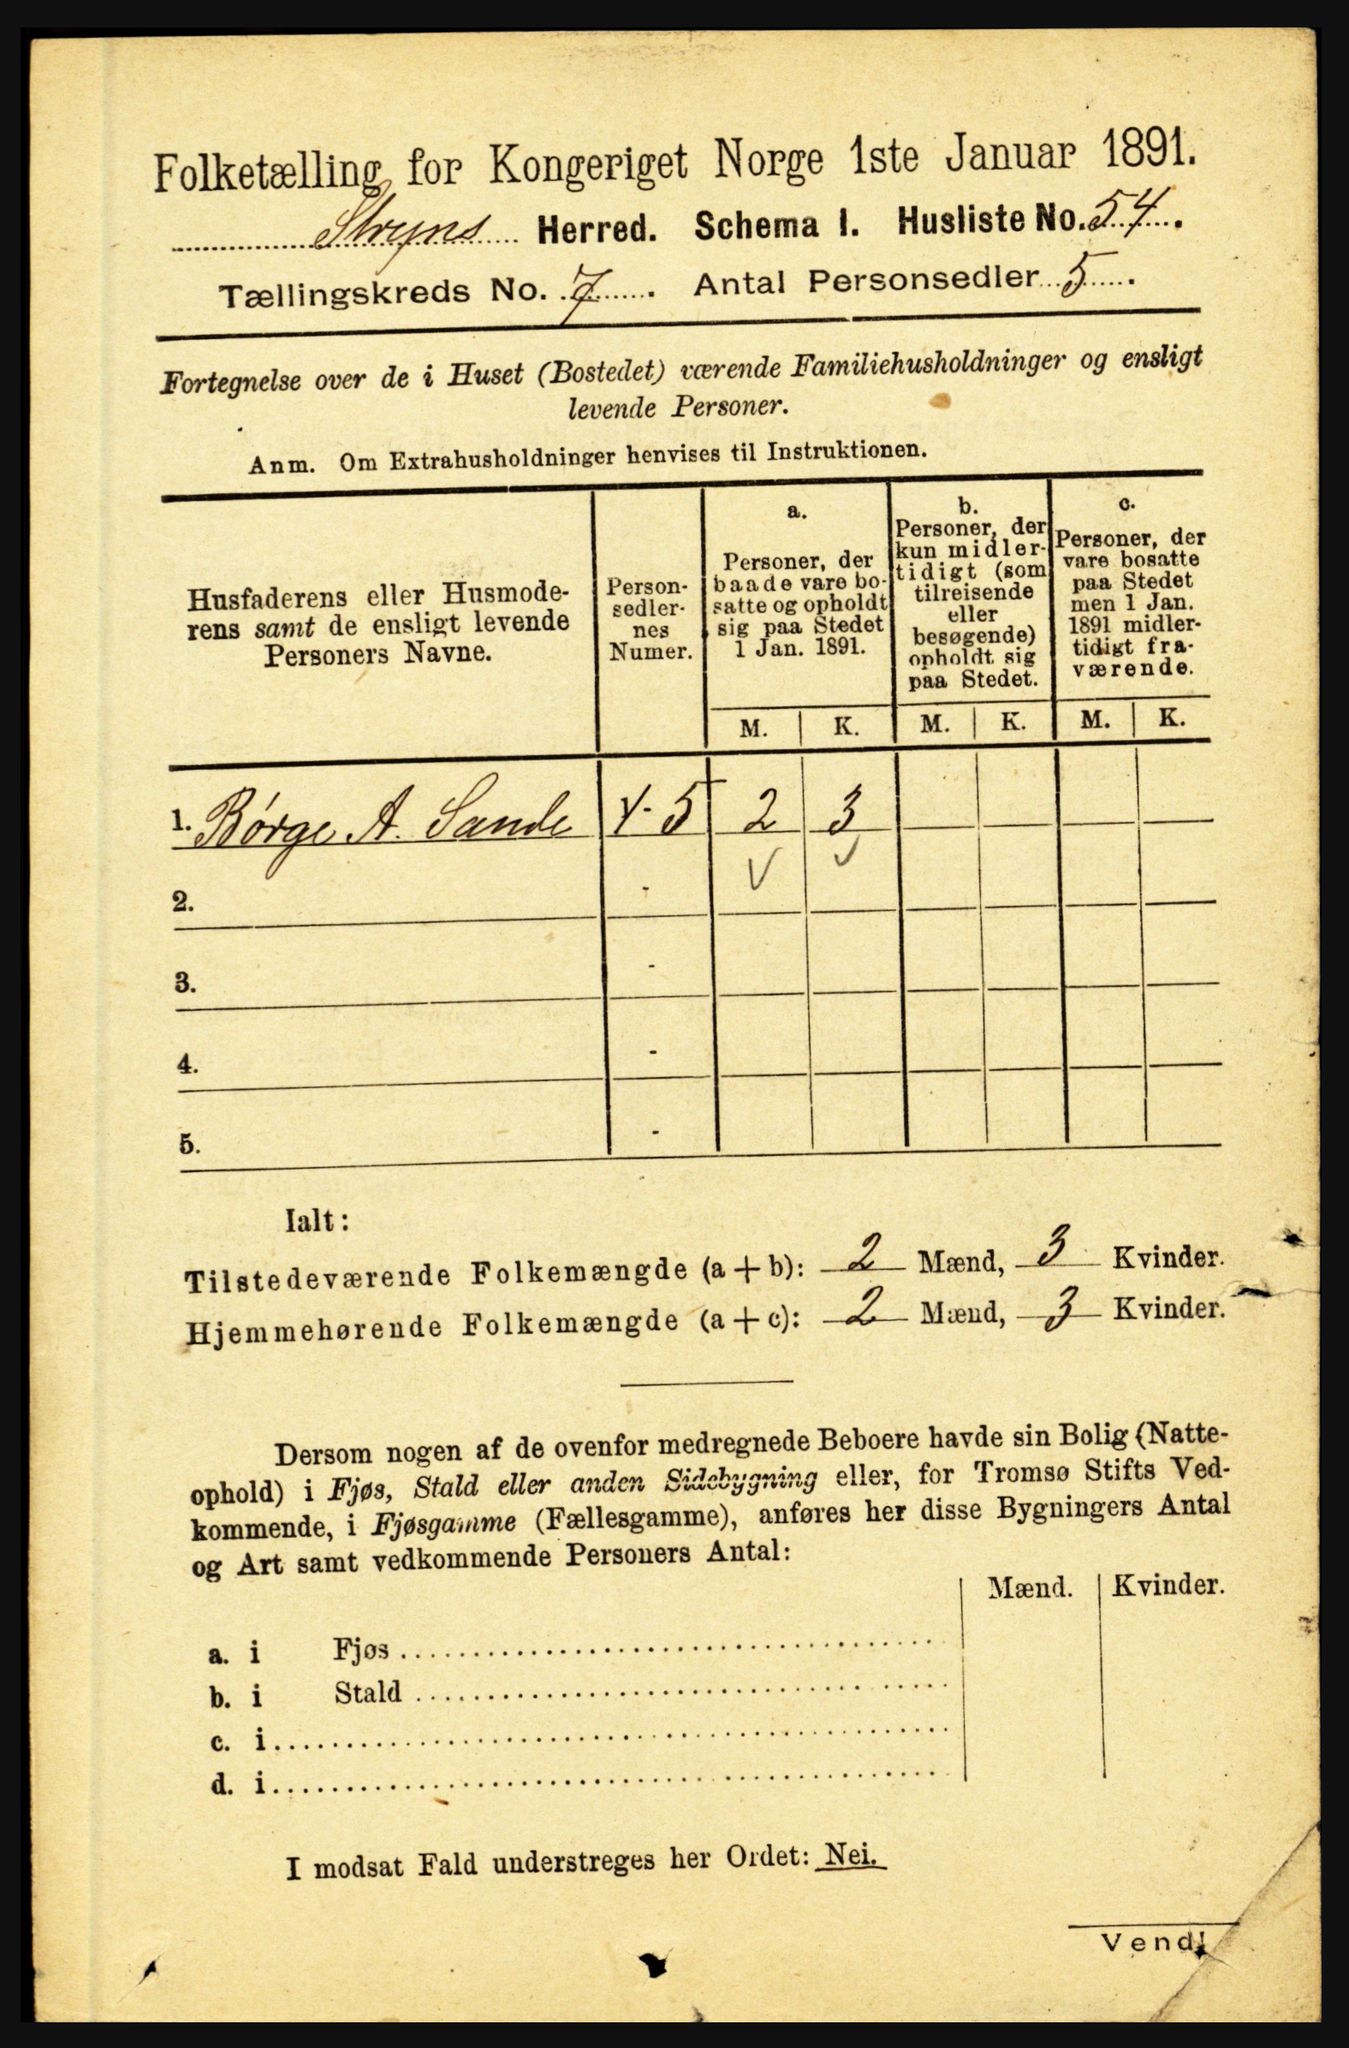 Folketælling for Kongeriget Norge 1ste Januar 1891.
Stryns Herred. Schema I. Husliste No. 54.
Tællingskreds No. 7. Antal Personsedler 5.
Fortegnelse over de i Huset (Bostedet) værende Familiehusholdninger og ensligt
levende Personer.
Anm. Om Extrahusholdninger henvises til Instruktionen.
Husfaderens eller Husmode-
rens samt de ensligt levende
Personers Navne.
Person-
sedler-
nes
Numer.
a.
Personer, der
baade vare bo-
satte og opholdt
sig paa Stedet
1 Jan. 1891.
b.
Personer, der
kun midler-
tidigt (som
tilreisende
eller
besøgende)
opholdt sig
paa Stedet.
c.
Personer, der
vare bosatte
paa Stedet
men 1 Jan.
1891 midler-
tidigt fra-
værende.
M. K. M. K. M. K.
1. Børge A. Sande 1-5 2 3
2. - √ √
3. -
4. -
5. -
Ialt:
Tilstedeværende Folkemængde (a+b): 2 Mænd, 3 Kvinder.
Hjemmehørende Folkemængde (a+c): 2 Mænd, 3 Kvinder.
Dersom nogen af de ovenfor medregnede Beboere havde sin Bolig (Natte-
ophold) i Fjøs, Stald eller anden Sidebygning eller, for Tromsø Stifts Ved-
kommende, i Fjøsgamme (Fællesgamme), anføres her disse Bygningers Antal
og Art samt vedkommende Personers Antal:
Mænd. Kvinder.
a. i Fjøs
b. i Stald
c. i
d. i
I modsat Fald understreges her Ordet: Nei.
Vend!